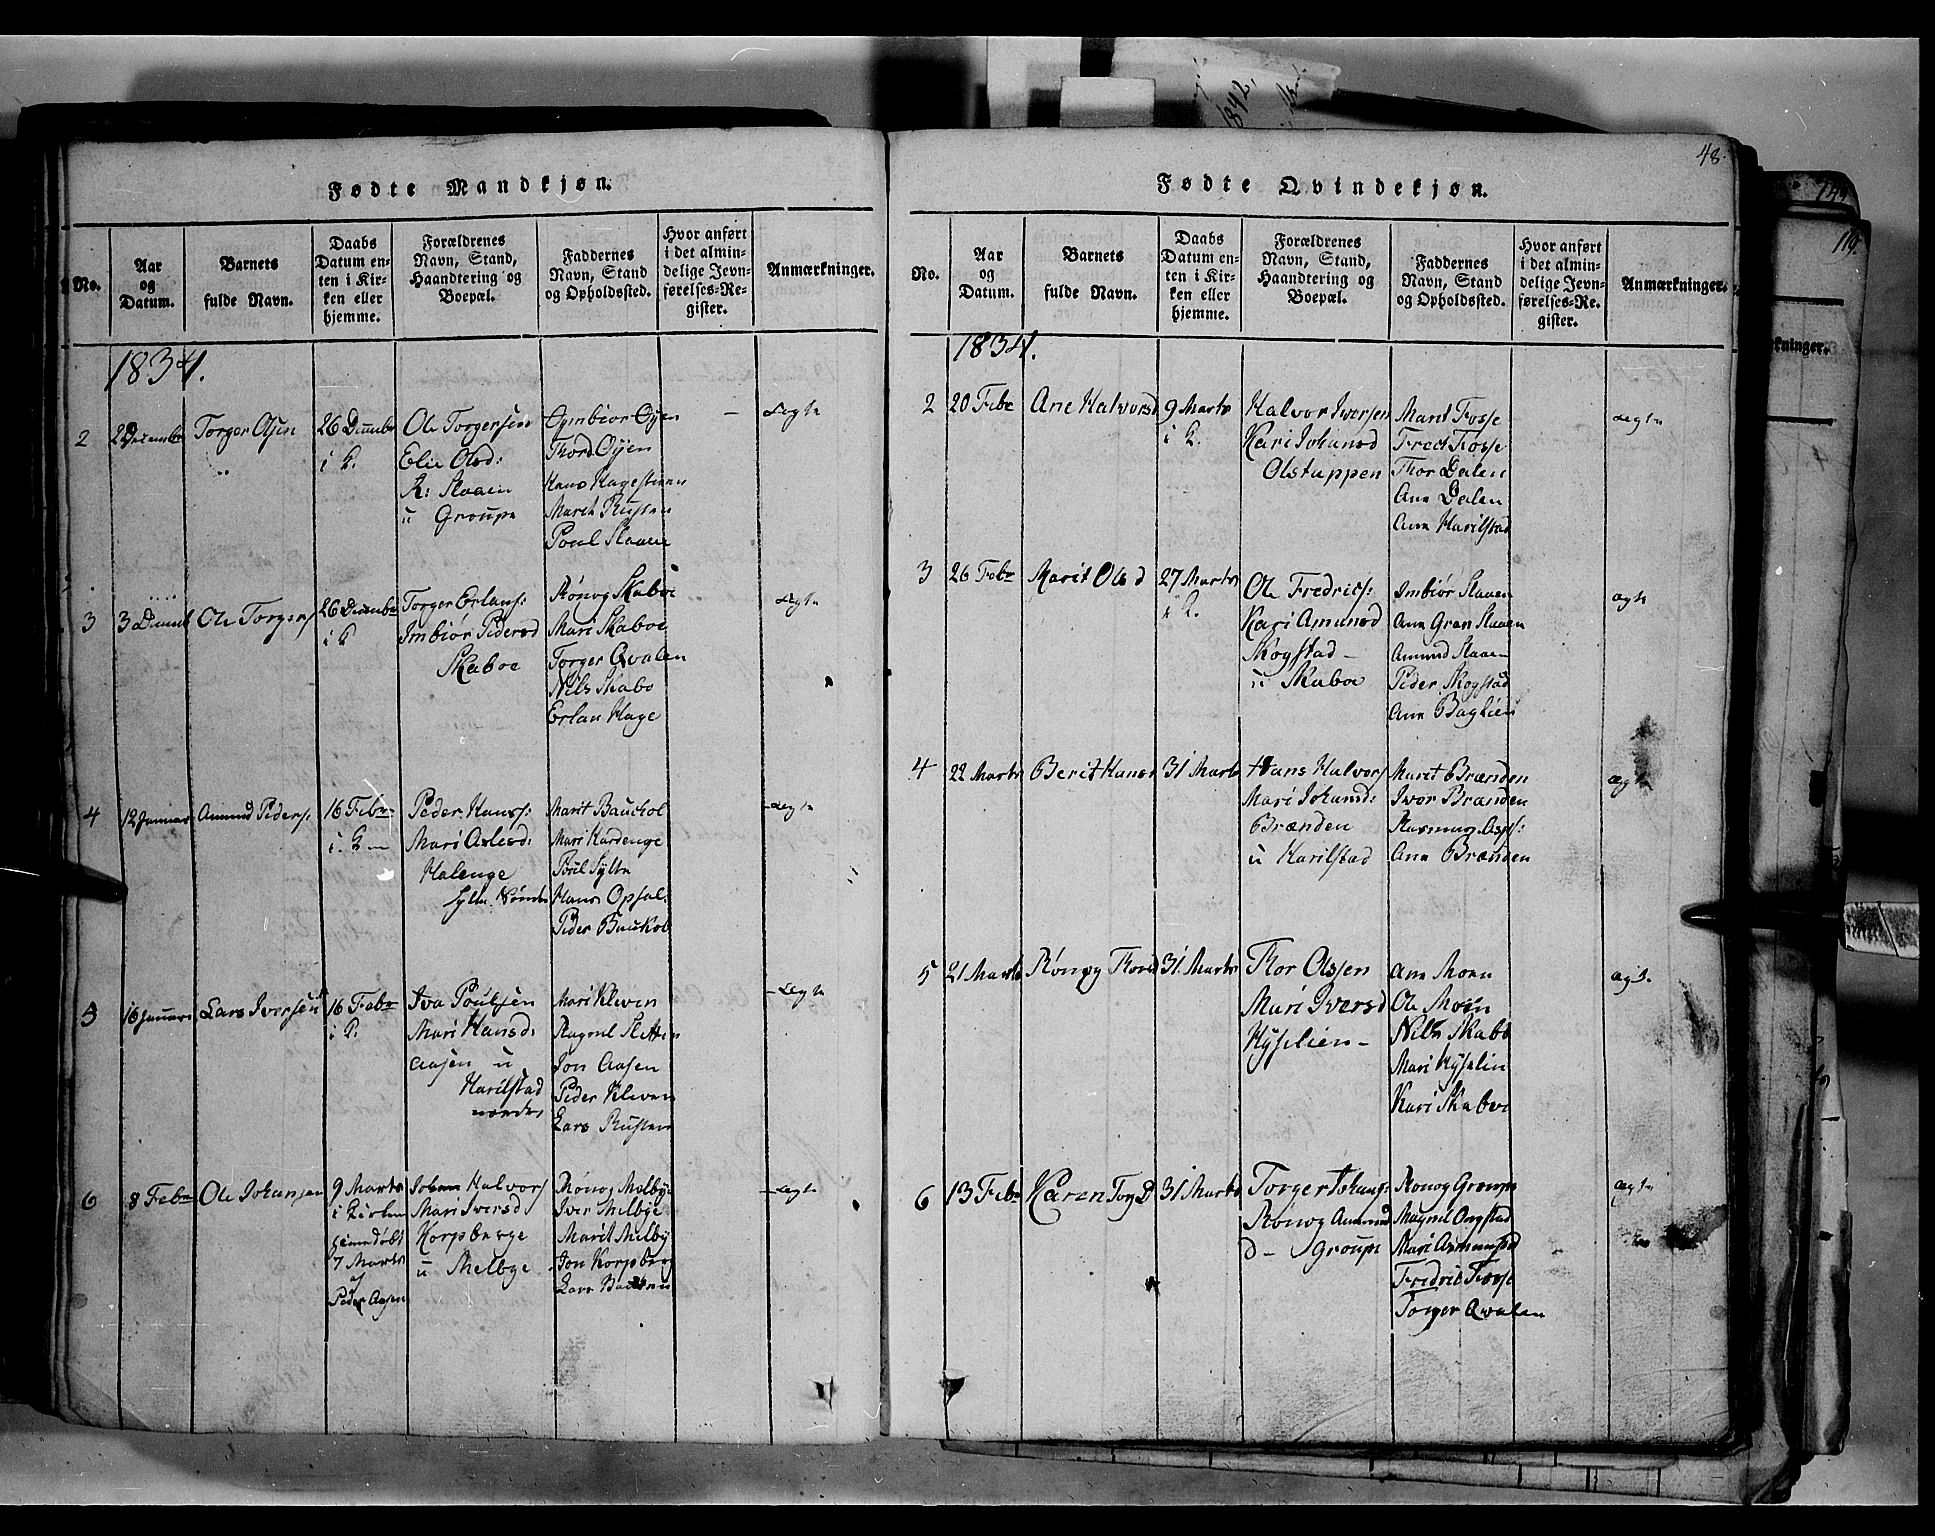 Fødte Mandkjøn.
No.
Aar
og
Datum.
Barnets
fulde Navn.
Daabs
Datum en-
ten i Kir-
ken eller
hjemme.
Forældrenes
Navn, Stand,
Haandtering og
Boepæl.
Faddernes
Navn, Stand
og Opholdssted.
Hvor anført
i det almin-
delige Jevn-
førelses-Re-
gister.
Anmærkninger.
1834.
2
2 December
Torger Olsen
26 December
i K.
Ole Torgersen
Elie Olsd:
R: Slaaen
u Groupe
Øyen
Thord Øyen
Hans Hagestuen
Marit Rusten
Poul Slaaen
Ægte
3
3 Decemb
Ole Torgers
26 December
i K
Torger Erlans:
Imbiør Pedersd
Skaboe
Rønog Skaboe
Mari Skaboe
Torger Qvalen
Nils Skabo
Erlan Hage
Ægte
4
12 Januar
Amund Peders:
16 Febr
i K
Peder Hans:
Mari
Halenge
Marit Baukol
Mari Hardenge
Poul Sylte
Hans Opsal
Peder Baukol
Ægte
5
16 Januari
Lars Iversen
16 Febr
i K.
Iva Poulsen
Mari Hansd:
Aasen u
Harilstad
nordre
Mari Kleven
Ragnil Sletten
Jon Aasen
Peder Kleven
Lars Rusten
Ægte
6
8 Febr
Ole Johansen
9 Marts
i Kirken
hjemedøbt
7 Marts
af
Peder Aasen
Johan Halvors
Mari Iversd
Korpberge
u Melbye
Rønog Melbye
Iver Melbye
Marit Melby
Jon Korpberg
Lars
Ægte
48.
Fødte Qvindekjøn.
No.
Aar
og
Datum.
Barnets
fulde Navn.
Daabs
Datum en-
ten i Kir-
ken eller
hjemme.
Forældrenes
Navn, Stand,
Haandtering og
Boepæl.
Faddernes
Navn, Stand
og Opholdsted.
Hvor anført
i det almin-
delige Jevn-
førelses-Re-
gister.
Anmærkninger.
1834.
2
20 Febr
Ane Halvorsd
9 Marts
i K.
Halvor Iversen
Kari Johansd
Olstappen
Marit Fosse
Fredr Fosse
Thor Dalen
Ane Dalen
Ane Harilstad
Ægte
3
26 Febr
Marit Olsd
27 Marts
i K.
Ole Fredrics:
Kari Amunsd
Skogstad -
u Skaboe
Imbiør Slaaen
Ane Gran Slaaen
Amund Slaaen
Peder Skogstad
Ane Baglien
ægte
4
22 Marts
Berit Hansd
31 Marts
Hans Halvors
Mari Johansd:
Brænden
u Harilstad
Marit Brænden
Iver Brænden
Rasmus
Ane Brænden
ægte
5
21 Marts
Rønog Thorsd
31. Marts
Thor Olssen
Mari Iversd
Kyselien -
Ane Moen
Ole Moen
Nils Skabo
Mari Kyselin
Kari Skaboe
ægte
6
13 Febr
Karen Torg D
31 Marts
Torger Johans:
Rønog Amund
d - Groupe
Ronog Groupe
Magnil Ongstad
Mari Asmunsd
Fredric Fosse
Torger Qvalen
ægte
1842,
119.